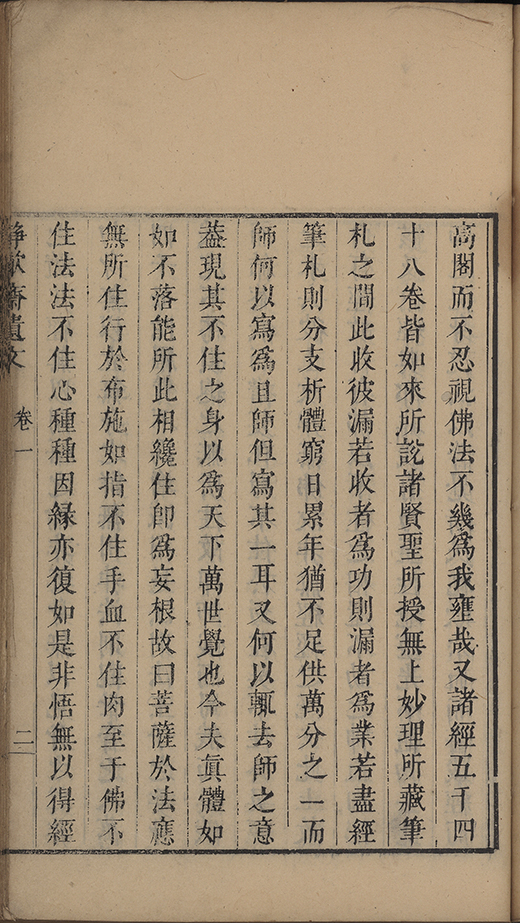 高閣而不忍視佛法不幾爲我壅哉又諸經五千四
十八卷皆如來所說諸賢聖所授無上妙理所藏筆
札之間此收彼漏若收者爲功則漏者爲業若盡經
筆札則分支析體窮日累年猶不足供萬分之一而
師何以寫爲且師但寫其一耳又何以輒去師之意
葢現其不住之身以爲天下萬世覺也今夫眞體如
如不落能所此相纔住卽爲妄根故曰菩薩於法應
無所住行於布施如指不住手血不住肉至于佛不
住法法不住心種種因緣亦復如是非悟無以得經
齋遺文 卷一 二